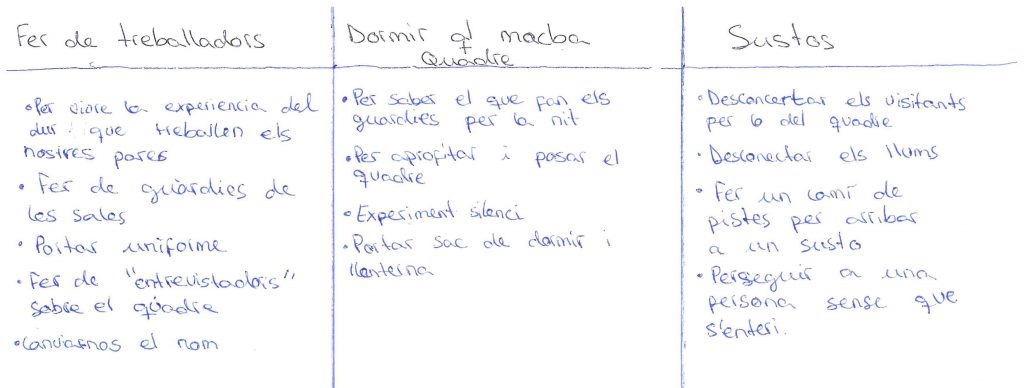 Fer de treballadors
Per viure la experiencia del
dur que treballen els
nostres pares
• Fer de guàrdies de
les sales
• Portar uniforme
• Fer de "entrevistadors"
sobre el quadre
• Canviarnos el nom
Dormir al macba
+
Quadre
• Per saber el que fan els
guardies per la nit
• Per aprofitar i posar el
quadre
• Experiment silenci
• Portar sac de dormir i
llanterna
Sustos
• Desconcertar els visitants
per lo del quadre
• Desconectar els llums
• Fer un camí de
pistes per arribar
a un susto
• Perseguir a una
persona sense que
s'enteri.